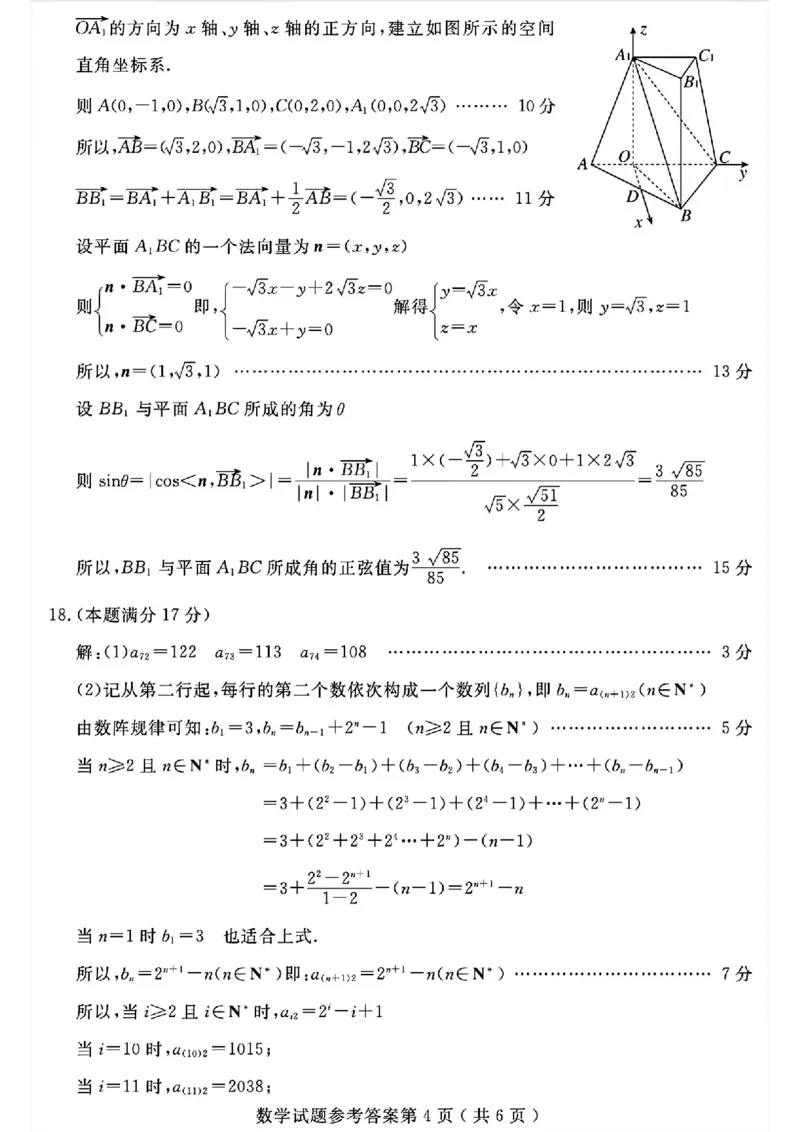 $\overrightarrow{OA_1}$的方向为 x 轴、y 轴、z 轴的正方向,建立如图所示的空间
直角坐标系.
则 A(0,-1,0),B(√3,1,0),C(0,2,0),A₁(0,0,2√3) ……… 10 分
所以,$\overrightarrow{AB}$=(√3,2,0),$\overrightarrow{BA_1}$=(-√3,-1,2√3),$\overrightarrow{BC}$=(-√3,1,0)
$\overrightarrow{BB_1}=\overrightarrow{BA_1}+\overrightarrow{A_1B_1}=\overrightarrow{BA_1}+\frac{1}{2}\overrightarrow{AB}=(-\frac{\sqrt{3}}{2},0,2\sqrt{3})$ …… 11 分
z
A₁
C₁
B₁
A
O
C
y
D
B
x
设平面 A₁BC 的一个法向量为 n=(x,y,z)
则$\begin{cases}n·\overrightarrow{BA_1}=0\\n·\overrightarrow{BC}=0\end{cases}$即,$\begin{cases}-\sqrt{3}x-y+2\sqrt{3}z=0\\-\sqrt{3}x+y=0\end{cases}$解得$\begin{cases}y=\sqrt{3}x\\z=x\end{cases}$,令 x=1,则 y=√3,z=1
所以,n=(1,√3,1) ……………………………………………… 13 分
设 BB₁ 与平面 A₁BC 所成的角为θ
则 sinθ=|cos<n,$\overrightarrow{BB_1}$>|=$\frac{|n·\overrightarrow{BB_1}|}{|n|·|\overrightarrow{BB_1}|}=\frac{1×(-\frac{\sqrt{3}}{2})+\sqrt{3}×0+1×2\sqrt{3}}{\sqrt{5}×\frac{\sqrt{51}}{2}}=\frac{3\sqrt{85}}{85}$
所以,BB₁ 与平面 A₁BC 所成角的正弦值为$\frac{3\sqrt{85}}{85}$. ……………………………… 15 分
18.(本题满分 17 分)
解:(1)a₇₂=122 a₇₃=113 a₇₄=108 ……………………………………………… 3 分
(2)记从第二行起,每行的第二个数依次构成一个数列{bₙ},即 bₙ=a₍ₙ₊₁₎₂(n∈N*)
由数阵规律可知:b₁=3,bₙ=bₙ₋₁+2ⁿ-1 (n≥2 且 n∈N*) ……………………… 5 分
当 n≥2 且 n∈N* 时,bₙ=b₁+(b₂-b₁)+(b₃-b₂)+(b₄-b₃)+…+(bₙ-bₙ₋₁)
=3+(2²-1)+(2³-1)+(2⁴-1)+…+(2ⁿ-1)
=3+(2²+2³+2⁴…+2ⁿ)-(n-1)
=3+$\frac{2^2-2^{n+1}}{1-2}$-(n-1)=2ⁿ⁺¹-n
当 n=1 时 b₁=3 也适合上式.
所以,bₙ=2ⁿ⁺¹-n(n∈N*)即:a₍ₙ₊₁₎₂=2ⁿ⁺¹-n(n∈N*) …………………………… 7 分
所以,当 i≥2 且 i∈N* 时,aᵢ₂=2ⁱ-i+1
当 i=10 时,a₍₁₀₎₂=1015;
当 i=11 时,a₍₁₁₎₂=2038;
数学试题参考答案第 4 页(共 6 页)